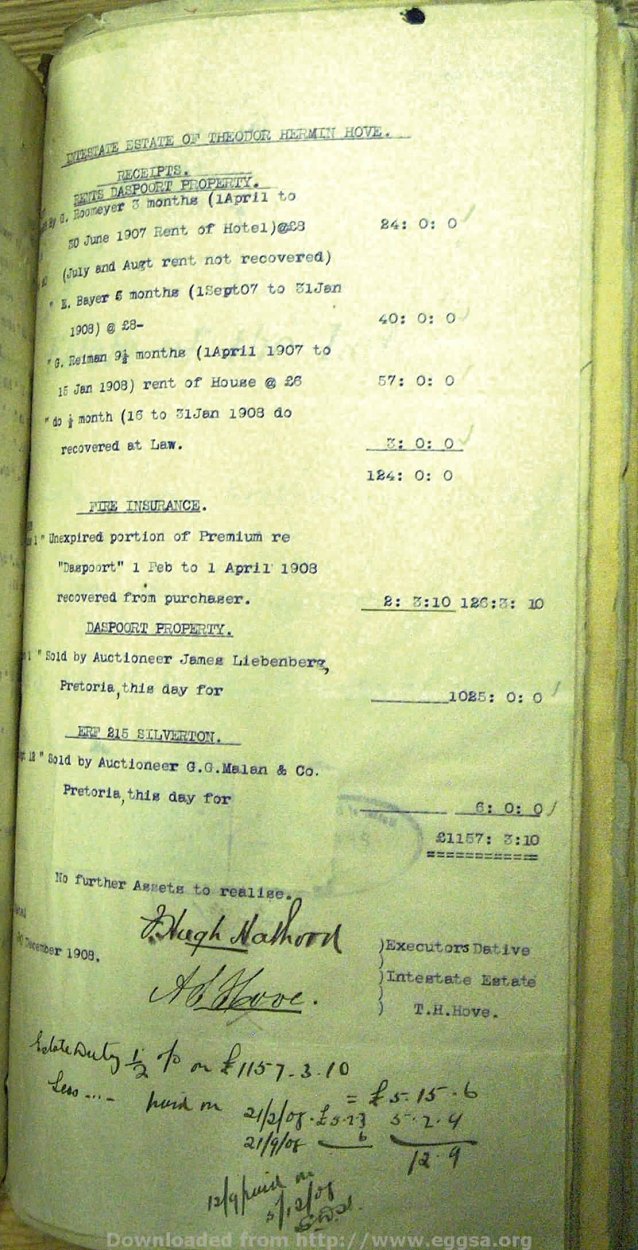 INTESTATE ESTATE OF THEODOR HERMIN HOVE.
RECEIPTS.
RENTS DASPOORT PROPERTY.
By G. Roomeyer 3 months (1April to
30 June 1907 Rent of Hotel)@£8 24: 0: 0
(July and Augt rent not recovered)
" E. Bayer 5 months (1Sept07 to 31Jan
1908) @ £8- 40: 0: 0
" G. Reiman 9½ months (1April 1907 to
15 Jan 1908) rent of House @ £6 57: 0: 0
" do ½ month (16 to 31Jan 1908 do
recovered at Law. 3: 0: 0
124: 0: 0
FIRE INSURANCE.
1 " Unexpired portion of Premium re
"Daspoort" 1 Feb to 1 April 1908
recovered from purchaser. 2: 3:10 126:3: 10
DASPOORT PROPERTY.
1 " Sold by Auctioneer James Liebenberg,
Pretoria,this day for 1025: 0: 0
ERF 215 SILVERTON.
12 " Sold by Auctioneer G.G.Malan & Co.
Pretoria,this day for 6: 0: 0
£1157: 3:10
============
No further Assets to realise.
December 1908.
Hugh
)Executors Dative
)
A Hove.
)Intestate Estate
)
) T.H.Hove.
Estate Duty ½ % on £1157-3-10
= £5-15-6
Less ... paid on 21/2/08 - £5- 5-2-4
21/9/08 6
12-9
12/9 paid on
5/12/08
Downloaded from http://www.eggsa.org